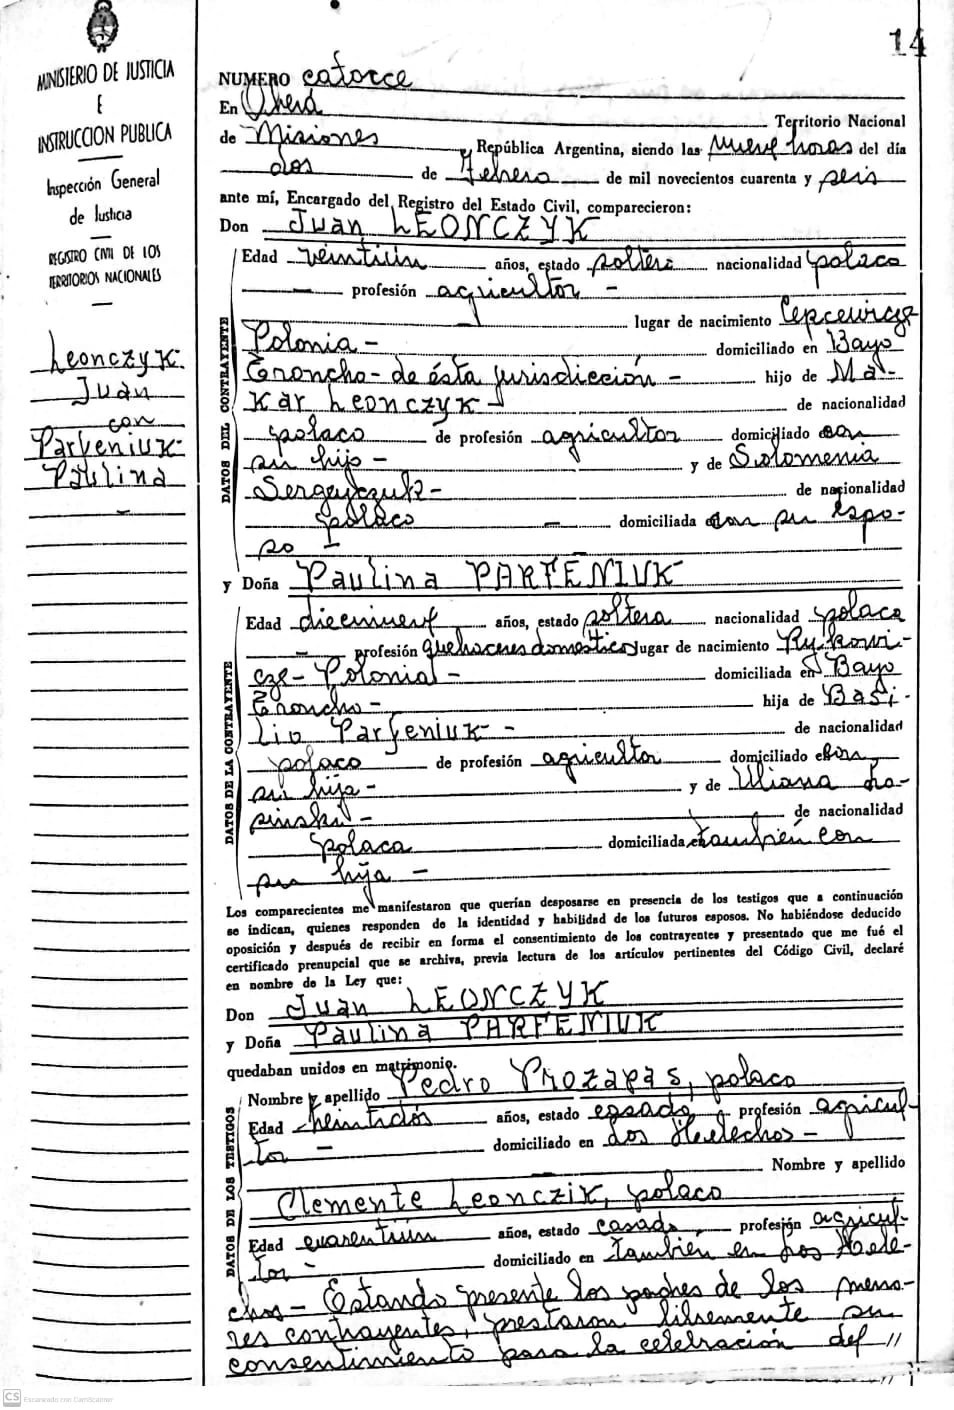 14
MINISTERIO DE JUSTICIA
E
INSTRUCCION PUBLICA
Inspección General
de Justicia
REGISTRO CIVIL DE LOS
TERRITORIOS NACIONALES
Leonczyk
Juan
con
Parfeniuk
Paulina
NUMERO catorce
En Oberá Territorio Nacional
de Misiones y República Argentina, siendo las nueve horas del día
dos de Febrero de mil novecientos cuarenta y seis
ante mí, Encargado del Registro del Estado Civil, comparecieron:
Don Juan LEONCZYK
DATOS DEL CONTRAYENTE
Edad veintiún años, estado soltero nacionalidad polaco
profesión agricultor -
lugar de nacimiento
Polonia - domiciliado en Bayo
Troncho - de ésta jurisdicción - hijo de Ma-
kar Leonczyk - de nacionalidad
polaco de profesión agricultor domiciliado con
su hijo - y de Solomenia
de nacionalidad
polaco domiciliada con su espo-
so -
y Doña Paulina PARFENIUK
DATOS DE LA CONTRAYENTE
Edad diecinueve años, estado soltera nacionalidad polaca
profesión quehaceres domésticos lugar de nacimiento Rykovi-
cze - Polonia - domiciliada en Bayo
Troncho - hija de Basi-
lio Parfeniuk - de nacionalidad
polaco de profesión agricultor domiciliado con
su hija - y de Uliana Lo-
pinski - de nacionalidad
polaca domiciliada también con
su hija -
Los comparecientes me manifestaron que querían desposarse en presencia de los testigos que a continuación
se indican, quienes responden de la identidad y habilidad de los futuros esposos. No habiéndose deducido
oposición y después de recibir en forma el consentimiento de los contrayentes y presentado que me fué el
certificado prenupcial que se archiva, previa lectura de los artículos pertinentes del Código Civil, declaré
en nombre de la Ley que:
Don Juan LEONCZYK
y Doña Paulina PARFENIUK
quedaban unidos en matrimonio.
DATOS DE LOS TESTIGOS
Nombre y apellido Pedro Prozapas, polaco
Edad veintidós años, estado casado, profesión agricul-
tor - domiciliado en Los Helechos -
Nombre y apellido
Clemente Leonczik, polaco
Edad cuarentiún años, estado casado, profesión agricul-
tor - domiciliado en también en Los Hele-
chos - Estando presente los padres de los meno-
res contrayentes, prestaron libremente su
consentimiento para la celebración del //
CS Escaneado con CamScanner